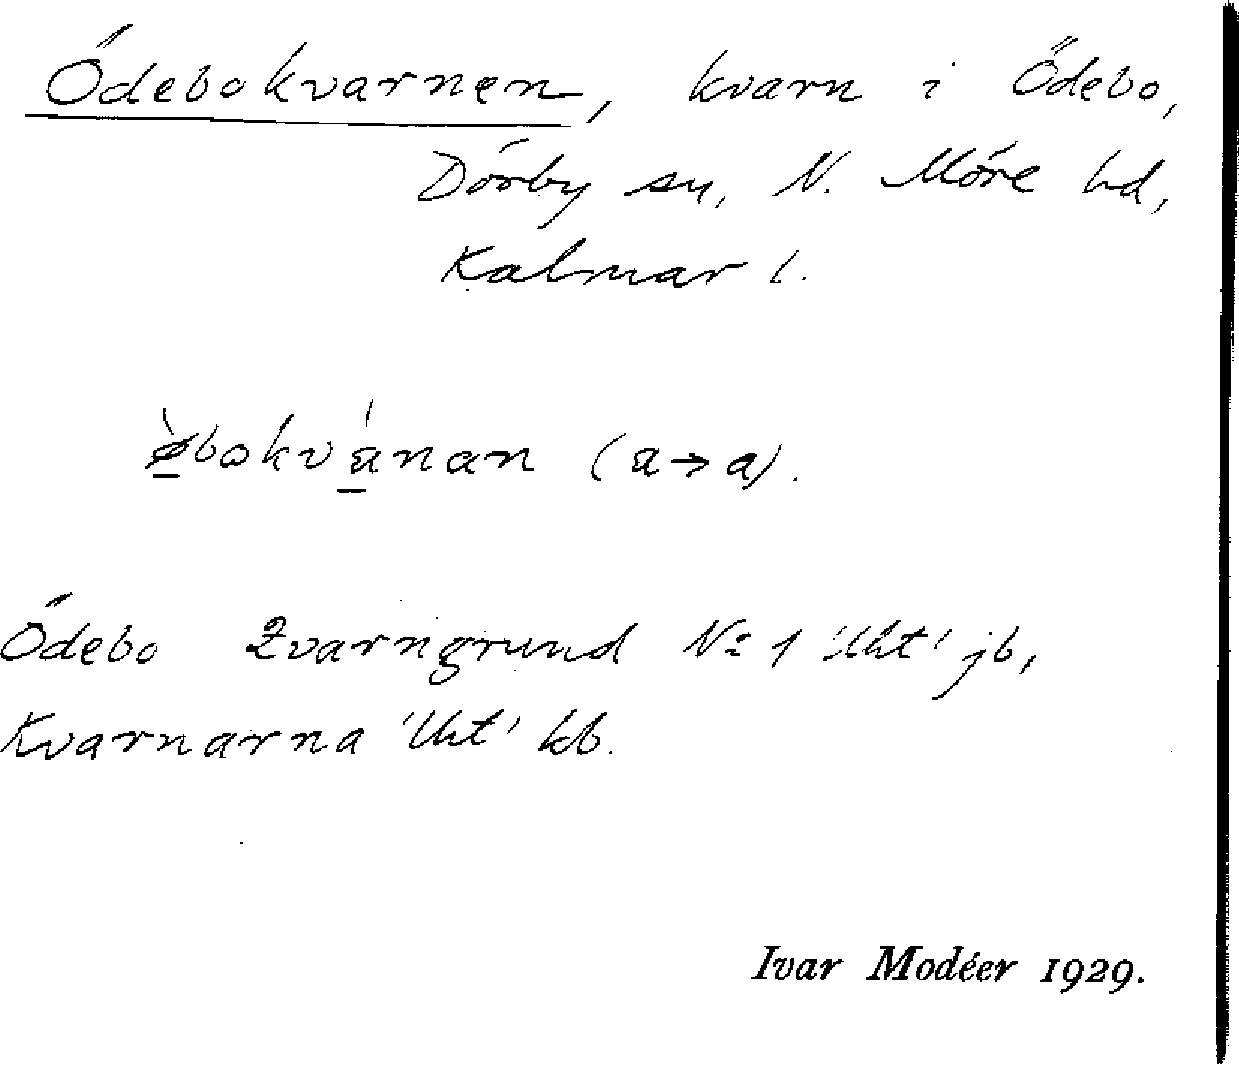 Ödebokvarnen, kvarn i Ödebo,
Dörby sn, N. Möre hd,
Kalmar l.
ø̱̀bokvá̱nan (a→a).
Ödebo Qvarngrund N:o 1 'Uht' jb,
Kvarnarna 'Uht' kb.
Ivar Modéer 1929.